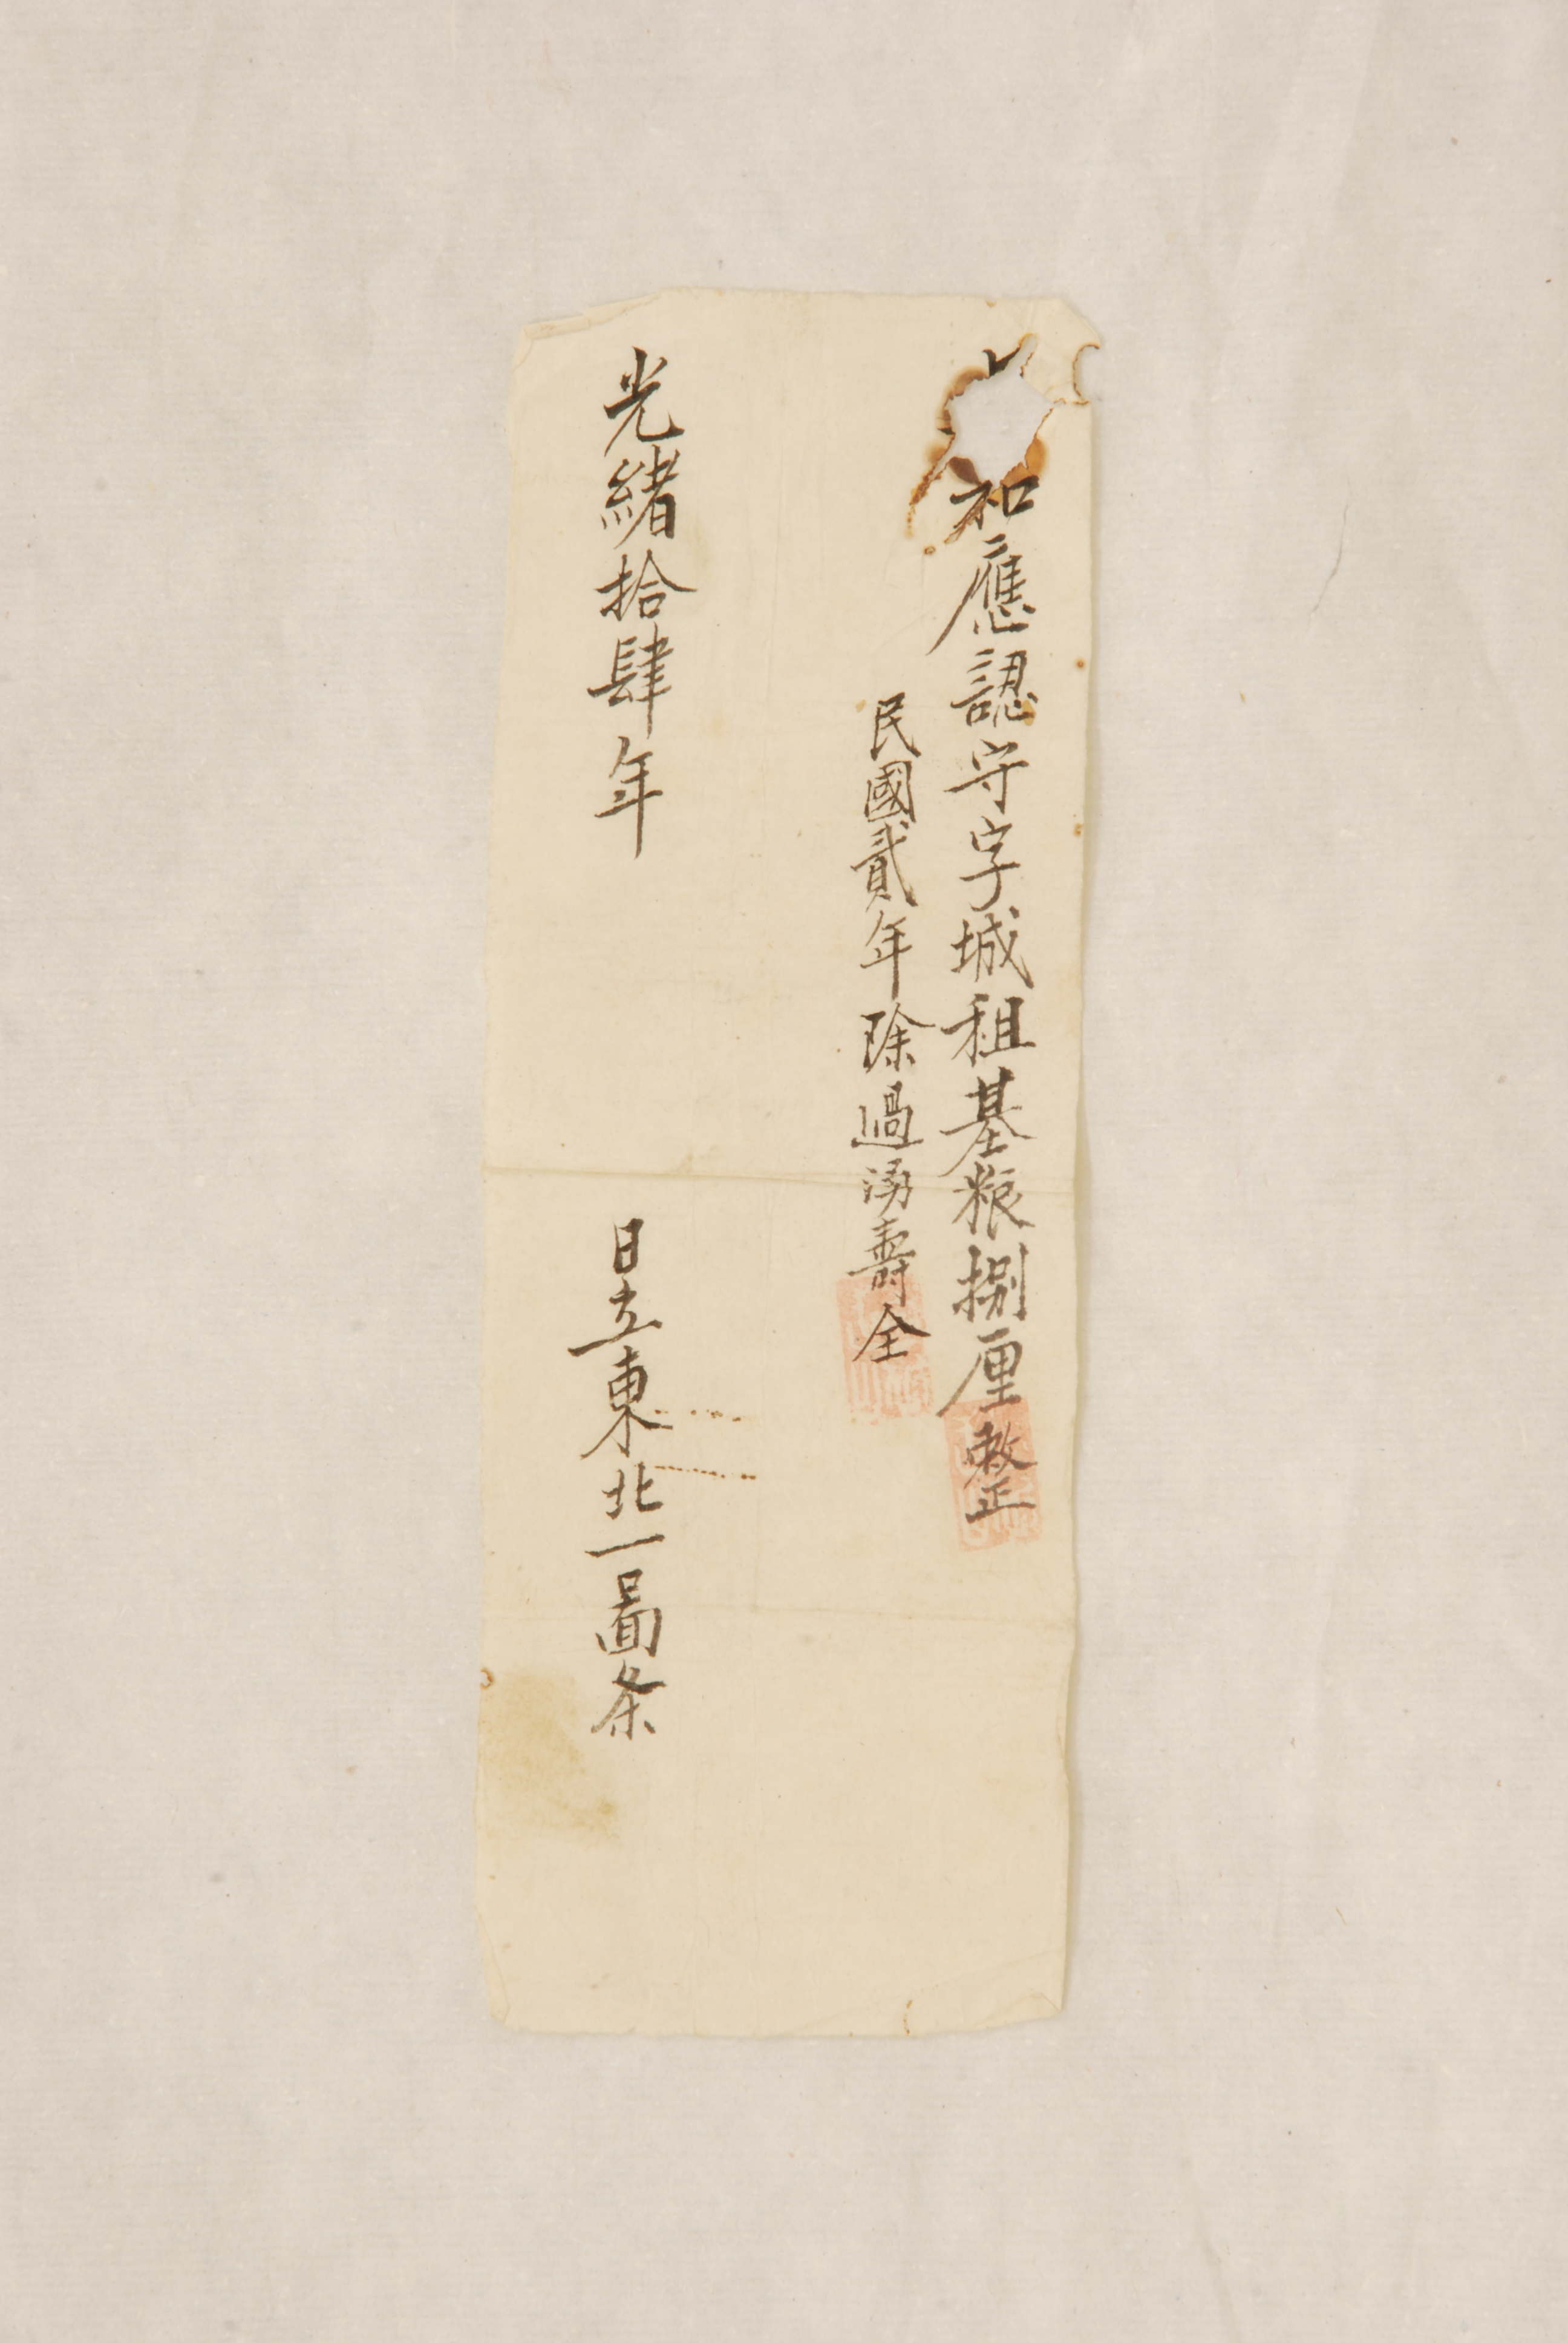 和應認守字城租基粮捌厘整
民國貳年除過湧壽全
光緒拾肆年 日立東北一啚条